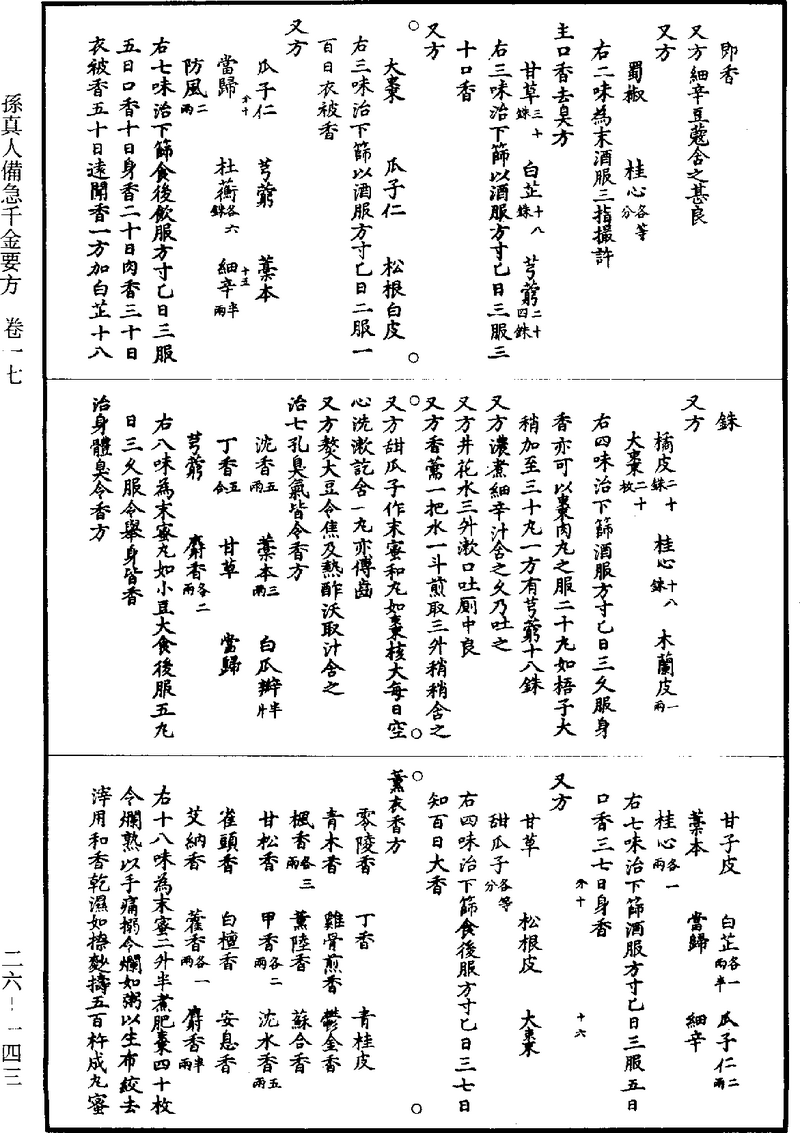 即香
又方細辛豆蔻含之甚良
又方
蜀椒　桂心各等分
右二味為末酒服三指撮許
主口香去臭方
甘草三十銖　白芷十八銖　芎藭二十四銖
右三味治下篩以酒服方寸匕日三服三
十口香
又方
大棗　瓜子仁　松根白皮
右三味治下篩以酒服方寸匕日二服一
百日衣被香
又方
瓜子仁　芎藭　藁本
當歸　杜蘅各六銖　細辛半兩
防風二兩
右七味治下篩食後飲服方寸匕日三服
五日口香十日身香二十日肉香三十日
衣被香五十日遠聞香一方加白芷十八
銖
又方
橘皮二十銖　桂心十八銖　木蘭皮一兩
大棗二十枚
右四味治下篩酒服方寸匕日三久服身
香亦可以棗肉丸之服二十丸如梧子大
稍加至三十丸一方有芎藭十八銖
又方濃煮細辛汁含之久乃吐之
又方井花水三升漱口吐廁中良
又方香薷一把水一斗煎取三升稍稍含之
又方甜瓜子作末蜜和丸如棗核大每日空
心洗漱訖含一丸亦傅齒
又方熬大豆令焦及熱酢沃取汁含之
治七孔臭氣皆令香方
沈香五兩　藁本三兩　白瓜瓣半升
丁香五合　甘草　當歸
芎藭　麝香各二兩
右八味為末蜜丸如小豆大食後服五丸
日三久服令舉身皆香
治身體臭令香方
甘子皮　白芷各一兩半　瓜子仁二兩
藁本　當歸　細辛
桂心各一兩
右七味治下篩酒服方寸匕日三服五日
口香三七日身香
又方
甘草　松根皮　大棗
甜瓜子各等分
右四味治下篩食後服方寸匕日三七日
知百日大香
薰衣香方
零陵香　丁香　青桂皮
青木香　雞骨煎香　鬱金香
楓香各三兩　薰陸香　蘇合香
甘松香　甲香各二兩　沈水香五兩
雀頭香　白檀香　安息香
艾納香　藿香各一兩　麝香半兩
右十八味為末蜜二升半煮肥棗四十枚
令爛熟以手痛搦令爛如粥以生布絞去
滓用和香乾濕如捺麨擣五百杵成丸蜜
孫真人備急千金要方　卷一七
二六－一四三